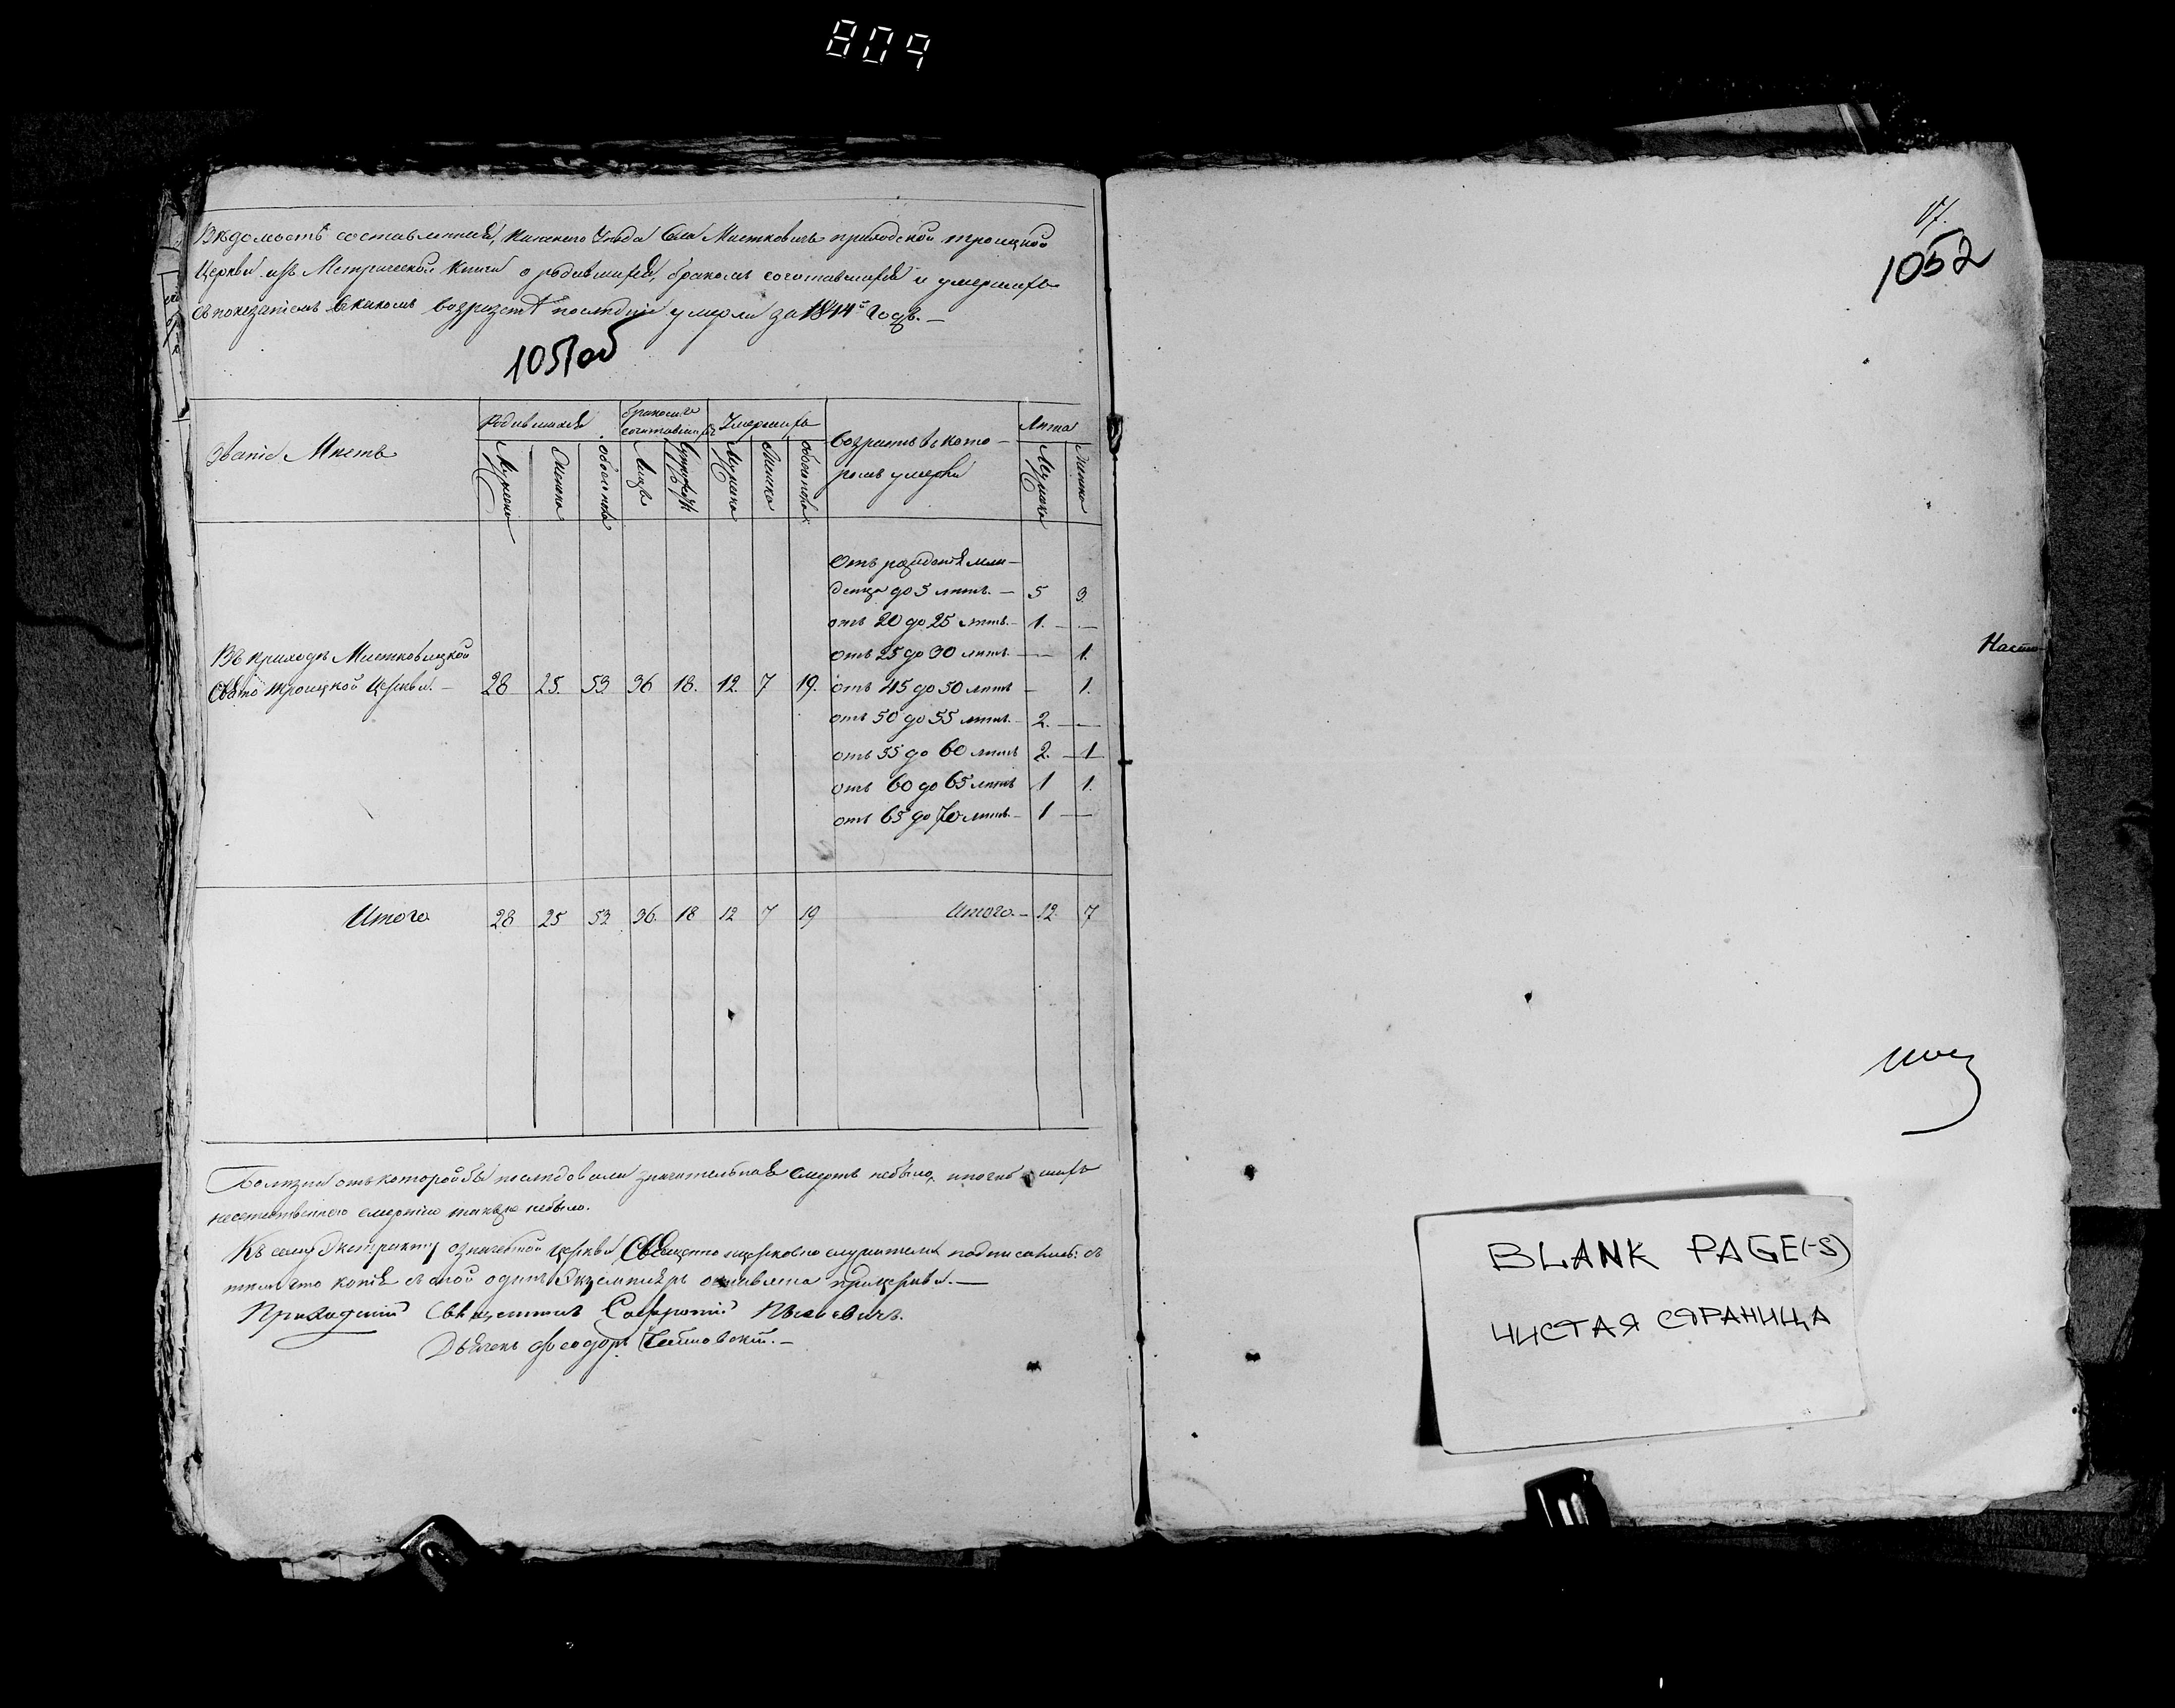 809
Вѣдомость составленная, Пинскаго Уѣзда Села Мистковичъ приходской троицкой
Церкви изъ Метрической Книги о родившихся, бракомъ сочетавшихся и умершихъ
съ показаніемъ въ какомъ возрастѣ послѣдніе умерли за 1844й Годъ. —
1051об
Званіе Мѣстъ
Родившихся
бракомъ
сочетавшихъ
Умершихъ
Возрастъ въ кото-
ромъ умерли
Лѣта
Мужска
Женска
обоего пола
Лицъ
Мужска
Женска
обоего пола
Мужска
Женска
Отъ рожденія мла-
денца до 5 лѣтъ. — 5 3.
отъ 20 до 25 лѣтъ. — 1. —
отъ 25 до 30 лѣтъ — — 1.
Въ приходѣ Мистковицкой
Свято троицкой Церкви. — 28 25. 53. 36 18. 12. 7 19. отъ 45 до 50 лѣтъ — 1.
отъ 50 до 55 лѣтъ. — 2. —
отъ 55 до 60 лѣтъ 2. — 1
отъ 60 до 65 лѣтъ 1 1.
отъ 65 до 70 лѣтъ. — 1 —
Итого 28 25 53 36. 18 12 7 19 Итого. — 12. 7
Болѣзни отъ которой бы послѣдовала значительная смерть небыло,
неестественною смертію также небыло.
Къ сему Экстракту означенной церкви Священно церковно служители подписались: съ
тѣмъ что копія съ сей одинъ Экземпляръ оставлена при церкви. —
Приходскій Священникъ Софроній
Дьячекъ Феодоръ
17.
1052
Насто
BLANK PAGE(-S)
ЧИСТАЯ СТРАНИЦА